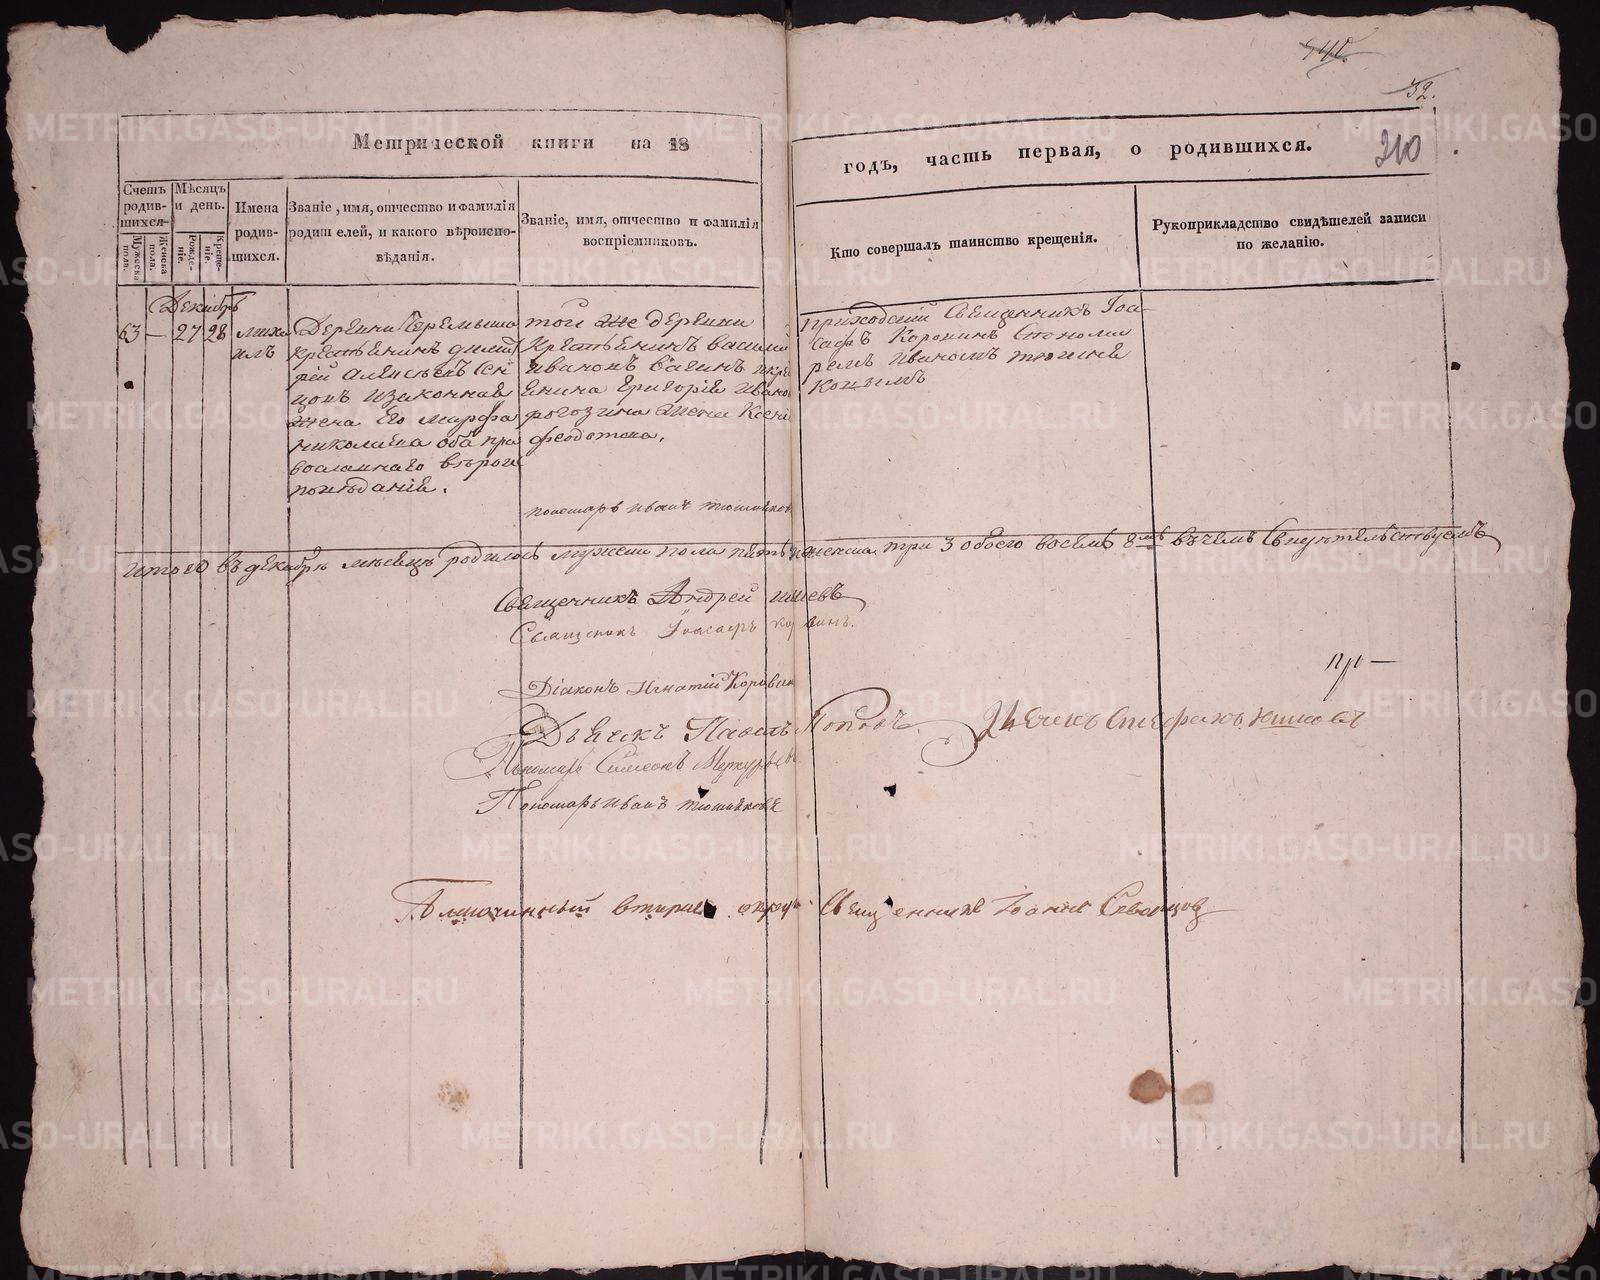 32.
210
Метрической книги на 18
годъ, часть первая, о родившихся.
Счетъ родив-шихся
Мужеска пола.
Женска пола.
Мѣсяцъ и день.
Рожде-ніе.
Креще-ніе.
Имена родив-шихся.
Званіе, имя, отчество и фамилія
родителей, и какого вѣроиспо-
вѣданія.
Званіе, имя, отчество и фамилія
воспріемниковъ.
Кто совершалъ таинство крещенія.
Рукоприкладство свидѣтелей записи
по желанію.
Декабрь
63 — 27 28
миха
илъ
Деревни
крестьянинъ димит
рій Алексѣевъ
изаконная
жена Его марфа
николаева оба пра
вославнаго вѣрои
повѣданія.
тои же деревни
крестьянинъ василій
ивановъ Вагинъ
Григорія ивано
рогозина жена
федотова.
пономарь иванъ
приходскій Священникъ Іоа
сафъ Коровинъ Спонома
ремъ иваномъ
итого въ декабрѣ мѣсяцѣ родилось мужеска пола пять женска три 3 обоего восемь 8мь въчемъ Свидѣтельствуемъ
Священникъ Андрей
Священникъ Іоасафъ Коровинъ.
Діаконъ Игнатій Коровинъ
Дьячекъ Павелъ Поповъ
Дьячекъ Стефанъ
Пономарь Симеонъ Меркурьевъ
Пономарь иванъ
Благочинный втораго округа Священникъ Іоаннъ